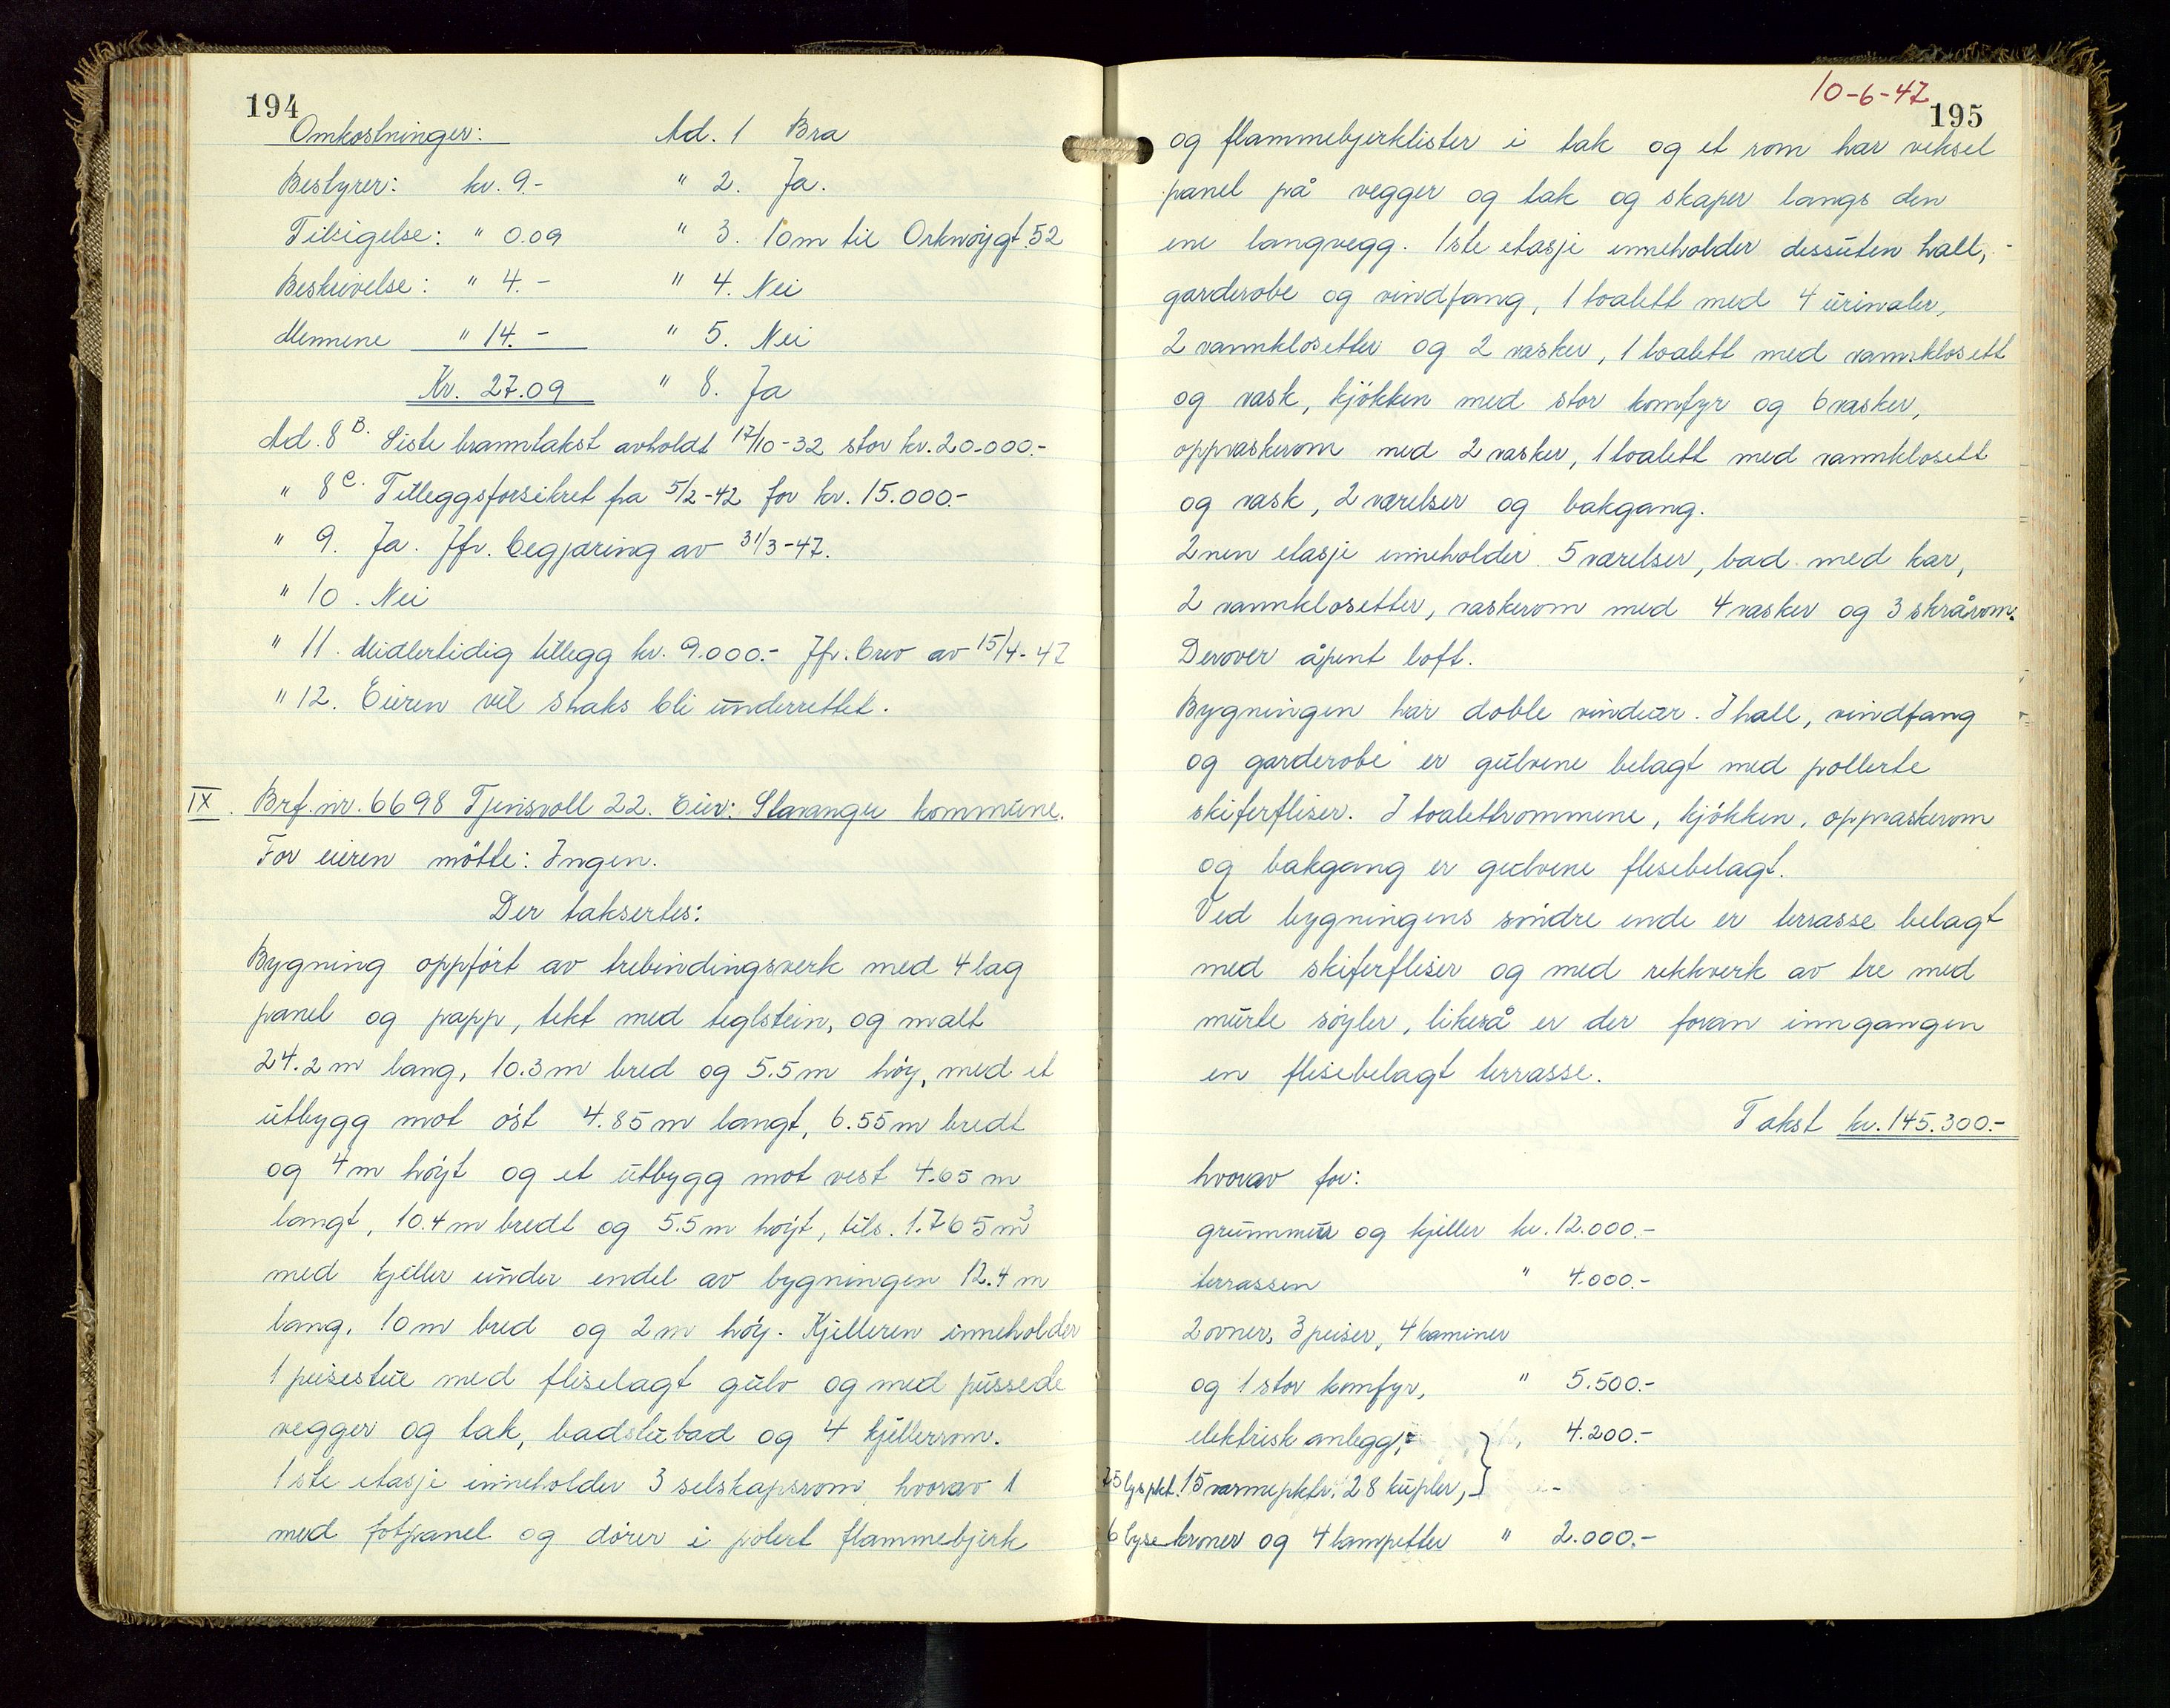 194
Omkostninger:
Bestyrer: kr. 9.-
Tilsigelse: " 0.09
Beskrivelse: " 4.-
Mennene " 14.-
Kr. 27.09
Ad. 1 Bra
" 2. Ja.
" 3. 10m til Orknøygt. 52
" 4. Nei
" 5. Nei
" 8. Ja
Ad. 8 B. Siste branntakst avholdt 17/10-32 stor kr. 20.000.-
" 8 C. Tilleggsforsikret fra 5/2-42 for kr. 15.000.-
" 9. Ja. Jfr. begjæring av 31/3-47.
" 10. Nei
" 11. Midlertidig tillegg kr. 9.000.- Jfr. brev av 15/4-47
" 12. Eieren vil straks bli underrettet.
IX. Brf. nr. 6698 Tjensvoll 22. Eier: Stavanger kommune.
For eieren møtte: Ingen.
Der taksertes:
Bygning oppført av trebindingsverk med 4 lag
panel og papp, tekt med teglstein, og malt
24.2 m lang, 10.3 m bred og 5.5 m høy, med et
utbygg mot øst 4.85 m langt, 6.55 m bredt
og 4 m høyt og et utbygg mot vest 4.65 m
langt, 10.4 m bredt og 5.5 m høyt, tils. 1.765 m³
med kjeller under endel av bygningen 12.4 m
lang, 10 m bred og 2 m høy. Kjelleren inneholder
1 peisestue med fliselagt gulv og med pussede
vegger og tak, badstubad og 4 kjellerrom.
1ste etasje inneholder 3 selskapsrom, hvorav 1
med fotpanel og dører i polert flammebjerk
10-6-47
195
og flammebjerklister i tak og et rom har veksel
panel på vegger og tak og skaper langs den
ene langvegg. 1ste etasje inneholder dessuten hall,
garderobe og vindfang, 1 toalett med 4 urinaler,
2 vannklosetter og 2 vasker, 1 toalett med vannklosett
og vask, kjøkken med stor komfyr og 6 vasker,
oppvaskerom med 2 vasker, 1 toalett med vannklosett
og vask, 2 værelser og bakgang.
2nen etasje inneholder 5 værelser, bad med kar,
2 vannklosetter, vaskerom med 4 vasker og 3 skrårom.
Derover åpent loft.
Bygningen har doble vinduer. I hall, vindfang
og garderobe er gulvene belagt med pollerte
skiferfliser. I toalettrommene, kjøkken, oppvaskerom
og bakgang er gulvene flisebelagt.
Ved bygningens søndre ende er terrasse belagt
med skiferfliser og med rekkverk av tre med
murte søyler, likeså er der foran inngangen
en flisebelagt terrasse.
Takst kr. 145.300.-
hvorav for:
grunnmur og kjeller kr. 12.000.-
terrassen " 4.000.-
2 ovner, 3 peiser, 4 kaminer
og 1 stor komfyr, " 5.500.-
elektrisk anlegg, " 4.200.-
75 lyspkt. 15 varmepktr. 28 kupler,
6 lysekroner og 4 lampetter " 2.000.-